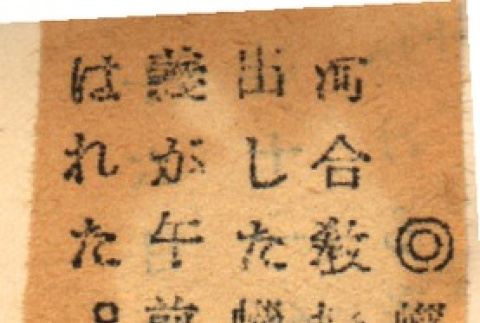 ◎
河合教
出した
が午前
はれた。